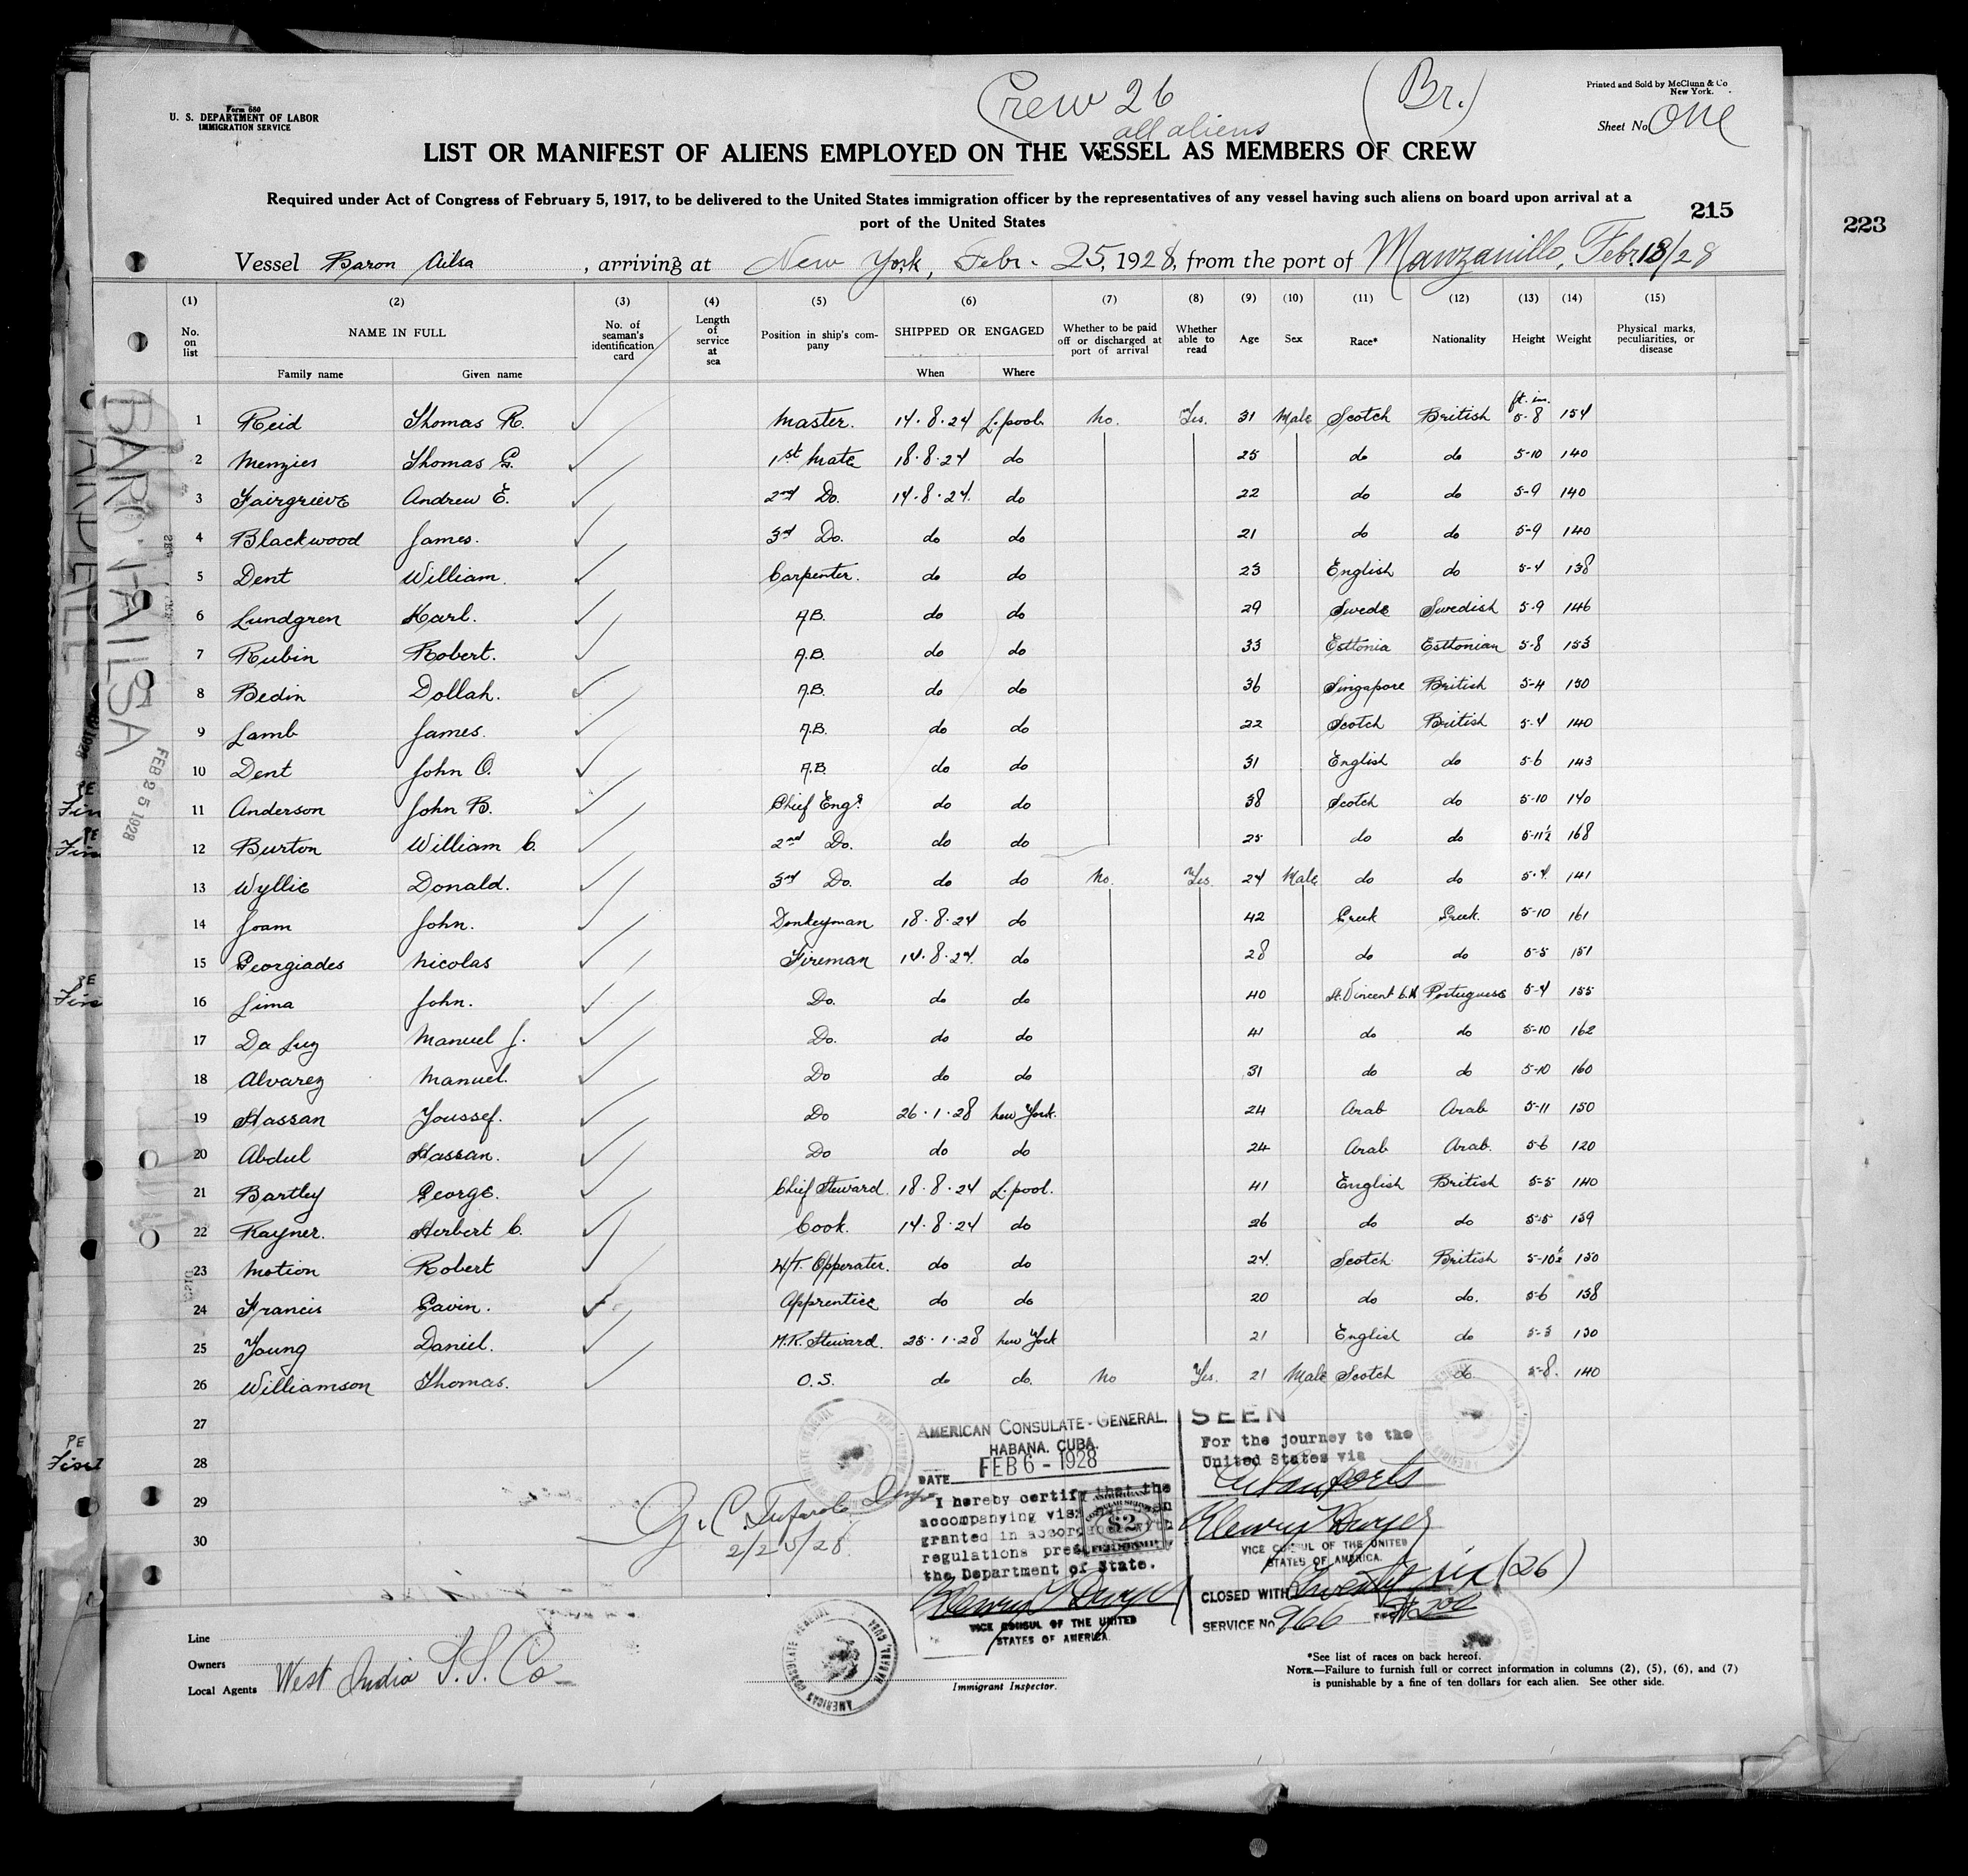 Crew 26 (Br.)
all aliens
Printed and Sold by McClunn & Co
New York.
Form 680
U. S. DEPARTMENT OF LABOR
IMMIGRATION SERVICE
Sheet No One
LIST OR MANIFEST OF ALIENS EMPLOYED ON THE VESSEL AS MEMBERS OF CREW
Required under Act of Congress of February 5, 1917, to be delivered to the United States immigration officer by the representatives of any vessel having such aliens on board upon arrival at a
port of the United States
215
223
Vessel Baron Ailsa, arriving at New York, Febr. 25, 1928, from the port of Manzanillo, Febr. 18/28
(1) (2) (3) (4) (5) (6) (7) (8) (9) (10) (11) (12) (13) (14) (15)
No. on list NAME IN FULL No. of seaman's identification card Length of service at sea Position in ship's company SHIPPED OR ENGAGED Whether to be paid off or discharged at port of arrival Whether able to read Age Sex Race* Nationality Height Weight Physical marks, peculiarities, or disease
Family name Given name When Where
ft. in.
1 Reid Thomas R. Master. 14.8.24 L.pool. No. Yes. 31 Male Scotch British 5-8 154
2 Menzies Thomas G. 1st Mate 18.8.24 do 25 do do 5-10 140
3 Fairgrieve Andrew E. 2nd Do. 14.8.24. do 22 do do 5-9 140
4 Blackwood James. 3rd Do. do do 21 do do 5-9 140
5 Dent William. Carpenter. do do 23 English do 5-4 138
6 Lundgren Karl. A.B. do do 29 Swede Swedish 5-9 146
7 Rubin Robert. A.B. do do 33 Esttonia Esttonian 5-8 153
8 Bedin Dollah. A.B. do do 36 Singapore British 5-4 130
9 Lamb James. A.B. do do 22 Scotch British 5-4 140
10 Dent John O. A.B. do do 31 English do 5-6 143
11 Anderson John B. Chief Engr. do do 38 Scotch do 5-10 170
12 Burton William C. 2nd Do. do do 25 do do 5-11½ 168
13 Wyllie Donald. 3rd Do. do do No. Yes. 24 Male do do 5-4. 141
14 Joam John. Donkeyman 18.8.24 do 42 Greek Greek. 5-10 161
15 Georgiades Nicolas Fireman 14.8.24. do 28 do do 5-5 151
16 Lima John. Do. do do 40 St. Vincent C.V Portuguese 5-4 155
17 Da Luz Manuel J. Do. do do 41 do do 5-10 162
18 Alvarez Manuel. Do do do 31 do do 5-10 160
19 Hassan Youssef. Do 26.1.28 New York. 24 Arab Arab 5-11 150
20 Abdul Hassan. Do do do 24 Arab Arab. 5-6 120
21 Bartley George. Chief Steward. 18.8.24 L.pool. 41 English British 5-5 140
22 Rayner. Herbert C. Cook. 14.8.24 do 26 do do 5-5 139
23 Motion Robert W/T. Opperater. do do 24. Scotch British 5-10½ 150
24 Francis Gavin. Apprentice do do 20 do do. 5-6 138
25 Young Daniel. M.R. Steward. 25.1.28 New York 21 English do 5-3 130
26 Williamson Thomas. O.S. do do. No Yes. 21 Male Scotch do. 5-8. 140
27
28
29
30
BARON AILSA
FEB 25 1928
AMERICAN CONSULATE-GENERAL.
HABANA. CUBA.
DATE FEB 6 - 1928
I hereby certify that the
accompanying visa has been
granted in accordance with
regulations prescribed by
the Department of State.
Henry T Dwyer
VICE CONSUL OF THE UNITED
STATES OF AMERICA
$2
SEEN
For the journey to the
United States via
Cuban ports
Henry T Dwyer
VICE CONSUL OF THE UNITED
STATES OF AMERICA.
CLOSED WITH Twenty six (26)
SERVICE No. 966
2/25/28
AMERICAN CONSULATE GENERAL HABANA, CUBA
Line
Owners
Local Agents West India S.S. Co
Immigrant Inspector.
*See list of races on back hereof.
NOTE.—Failure to furnish full or correct information in columns (2), (5), (6), and (7)
is punishable by a fine of ten dollars for each alien. See other side.